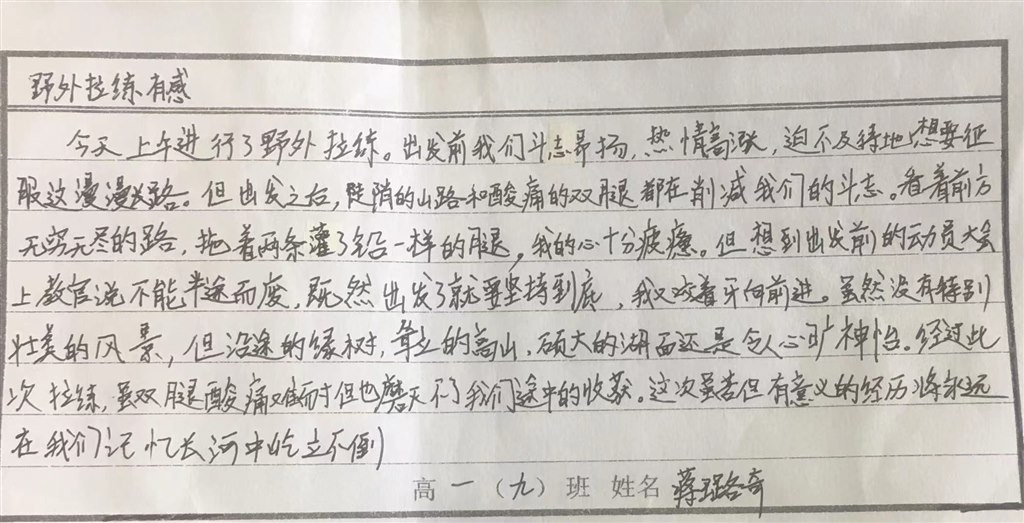 野外拉练有感
今天上午进行了野外拉练。出发前我们斗志昂扬,热情高涨,迫不及待地想要征
服这漫漫长路。但出发之后,陡峭的山路和酸痛的双腿都在削减我们的斗志。看着前方
无穷无尽的路,拖着两条灌了铅一样的腿,我的心十分疲惫。但想到出发前的动员大会
上教官说不能半途而废,既然出发了就要坚持到底,我又咬着牙向前进。虽然没有特别
壮美的风景,但沿途的绿树,耸立的高山,硕大的湖面还是令人心旷神怡。经过此
次拉练,虽双腿酸痛难耐但也磨灭不了我们途中的收获。这次虽苦但有意义的经历将永远
在我们记忆长河中屹立不倒
高一(九)班 姓名 蒋璐奇